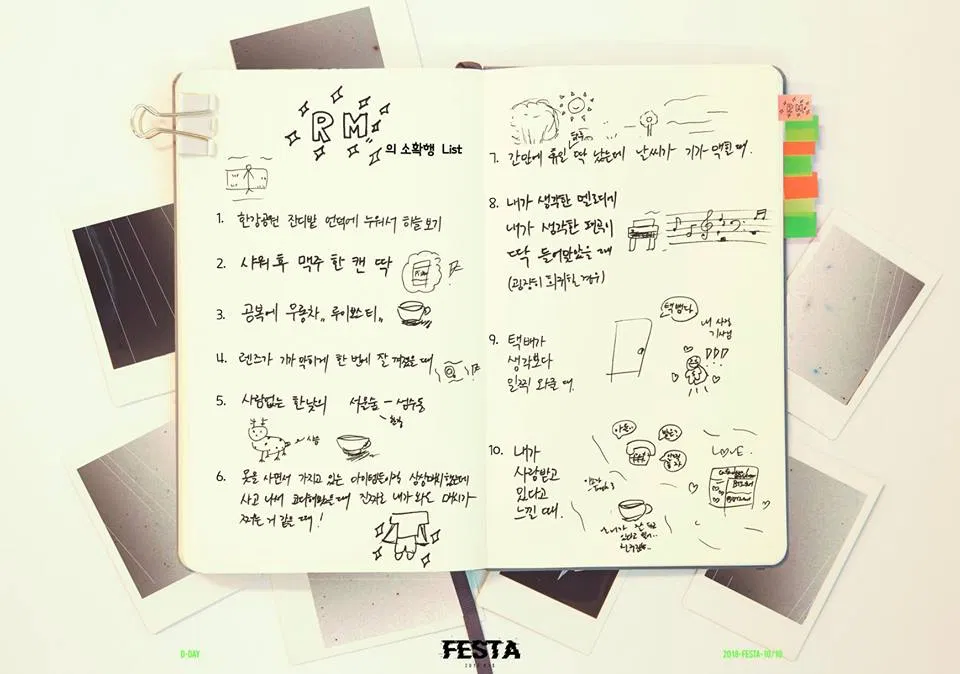 RM
의 소확행 List
1. 한강공원 잔디밭 언덕에 누워서 하늘 보기
2. 샤워 후 맥주 한 캔 딱
3. 공복에 우롱차, 루이보스티,,
4. 렌즈가 기가 막히게 한 번에 잘 껴졌을 때
5. 사람없는 한낮의 서울숲 – 성수동
사슴
6. 옷을 사면서 가지고 있는 아이템들이랑 상상매치했는데
사고 나서 코디해봤을 때 진짜로 내가 와 매치가
쩌는 거 같을 때!
RM
7. 간만에 휴일 딱 났는데 날씨가 기가 맥힐 때.
8. 내가 생각한 멜로디에
내가 생각한 패턴이
딱 들어맞았을 때
(굉장히 희귀한 경우)
택뱁니다
내 사랑
기사님
9. 택배가
생각보다
일찍 와줄 때.
10. 내가
사랑받고
있다고
느낄 때.
LOVE.
D-DAY
FESTA
2018-FESTA-10/10